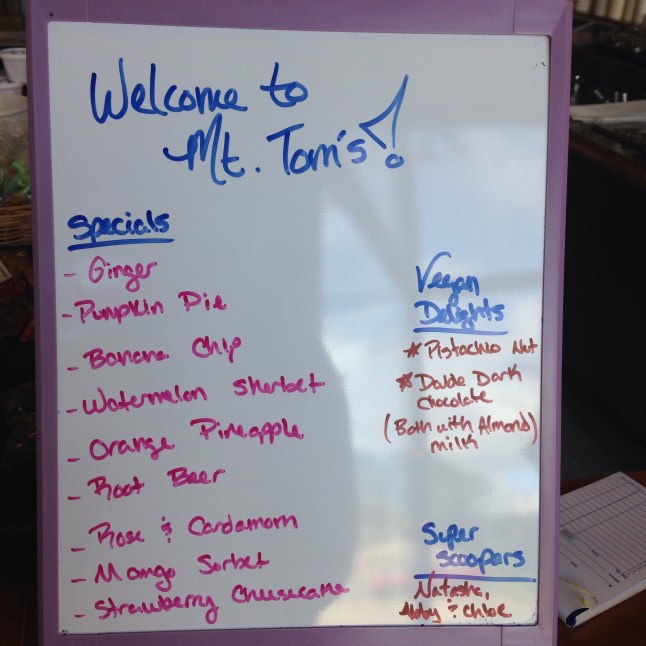 Welcome to
Mt. Tom's!
Specials
- Ginger
- Pumpkin Pie
- Banana Chip
- Watermelon Sherbet
- Orange Pineapple
- Root Beer
- Rose & Cardamom
- Mango Sorbet
- Strawberry Cheesecake
Vegan
Delights
* Pistachio Nut
* Double Dark
Chocolate
(Both with Almond)
milk
Super
Scoopers
Natasha,
Abby & Chloe